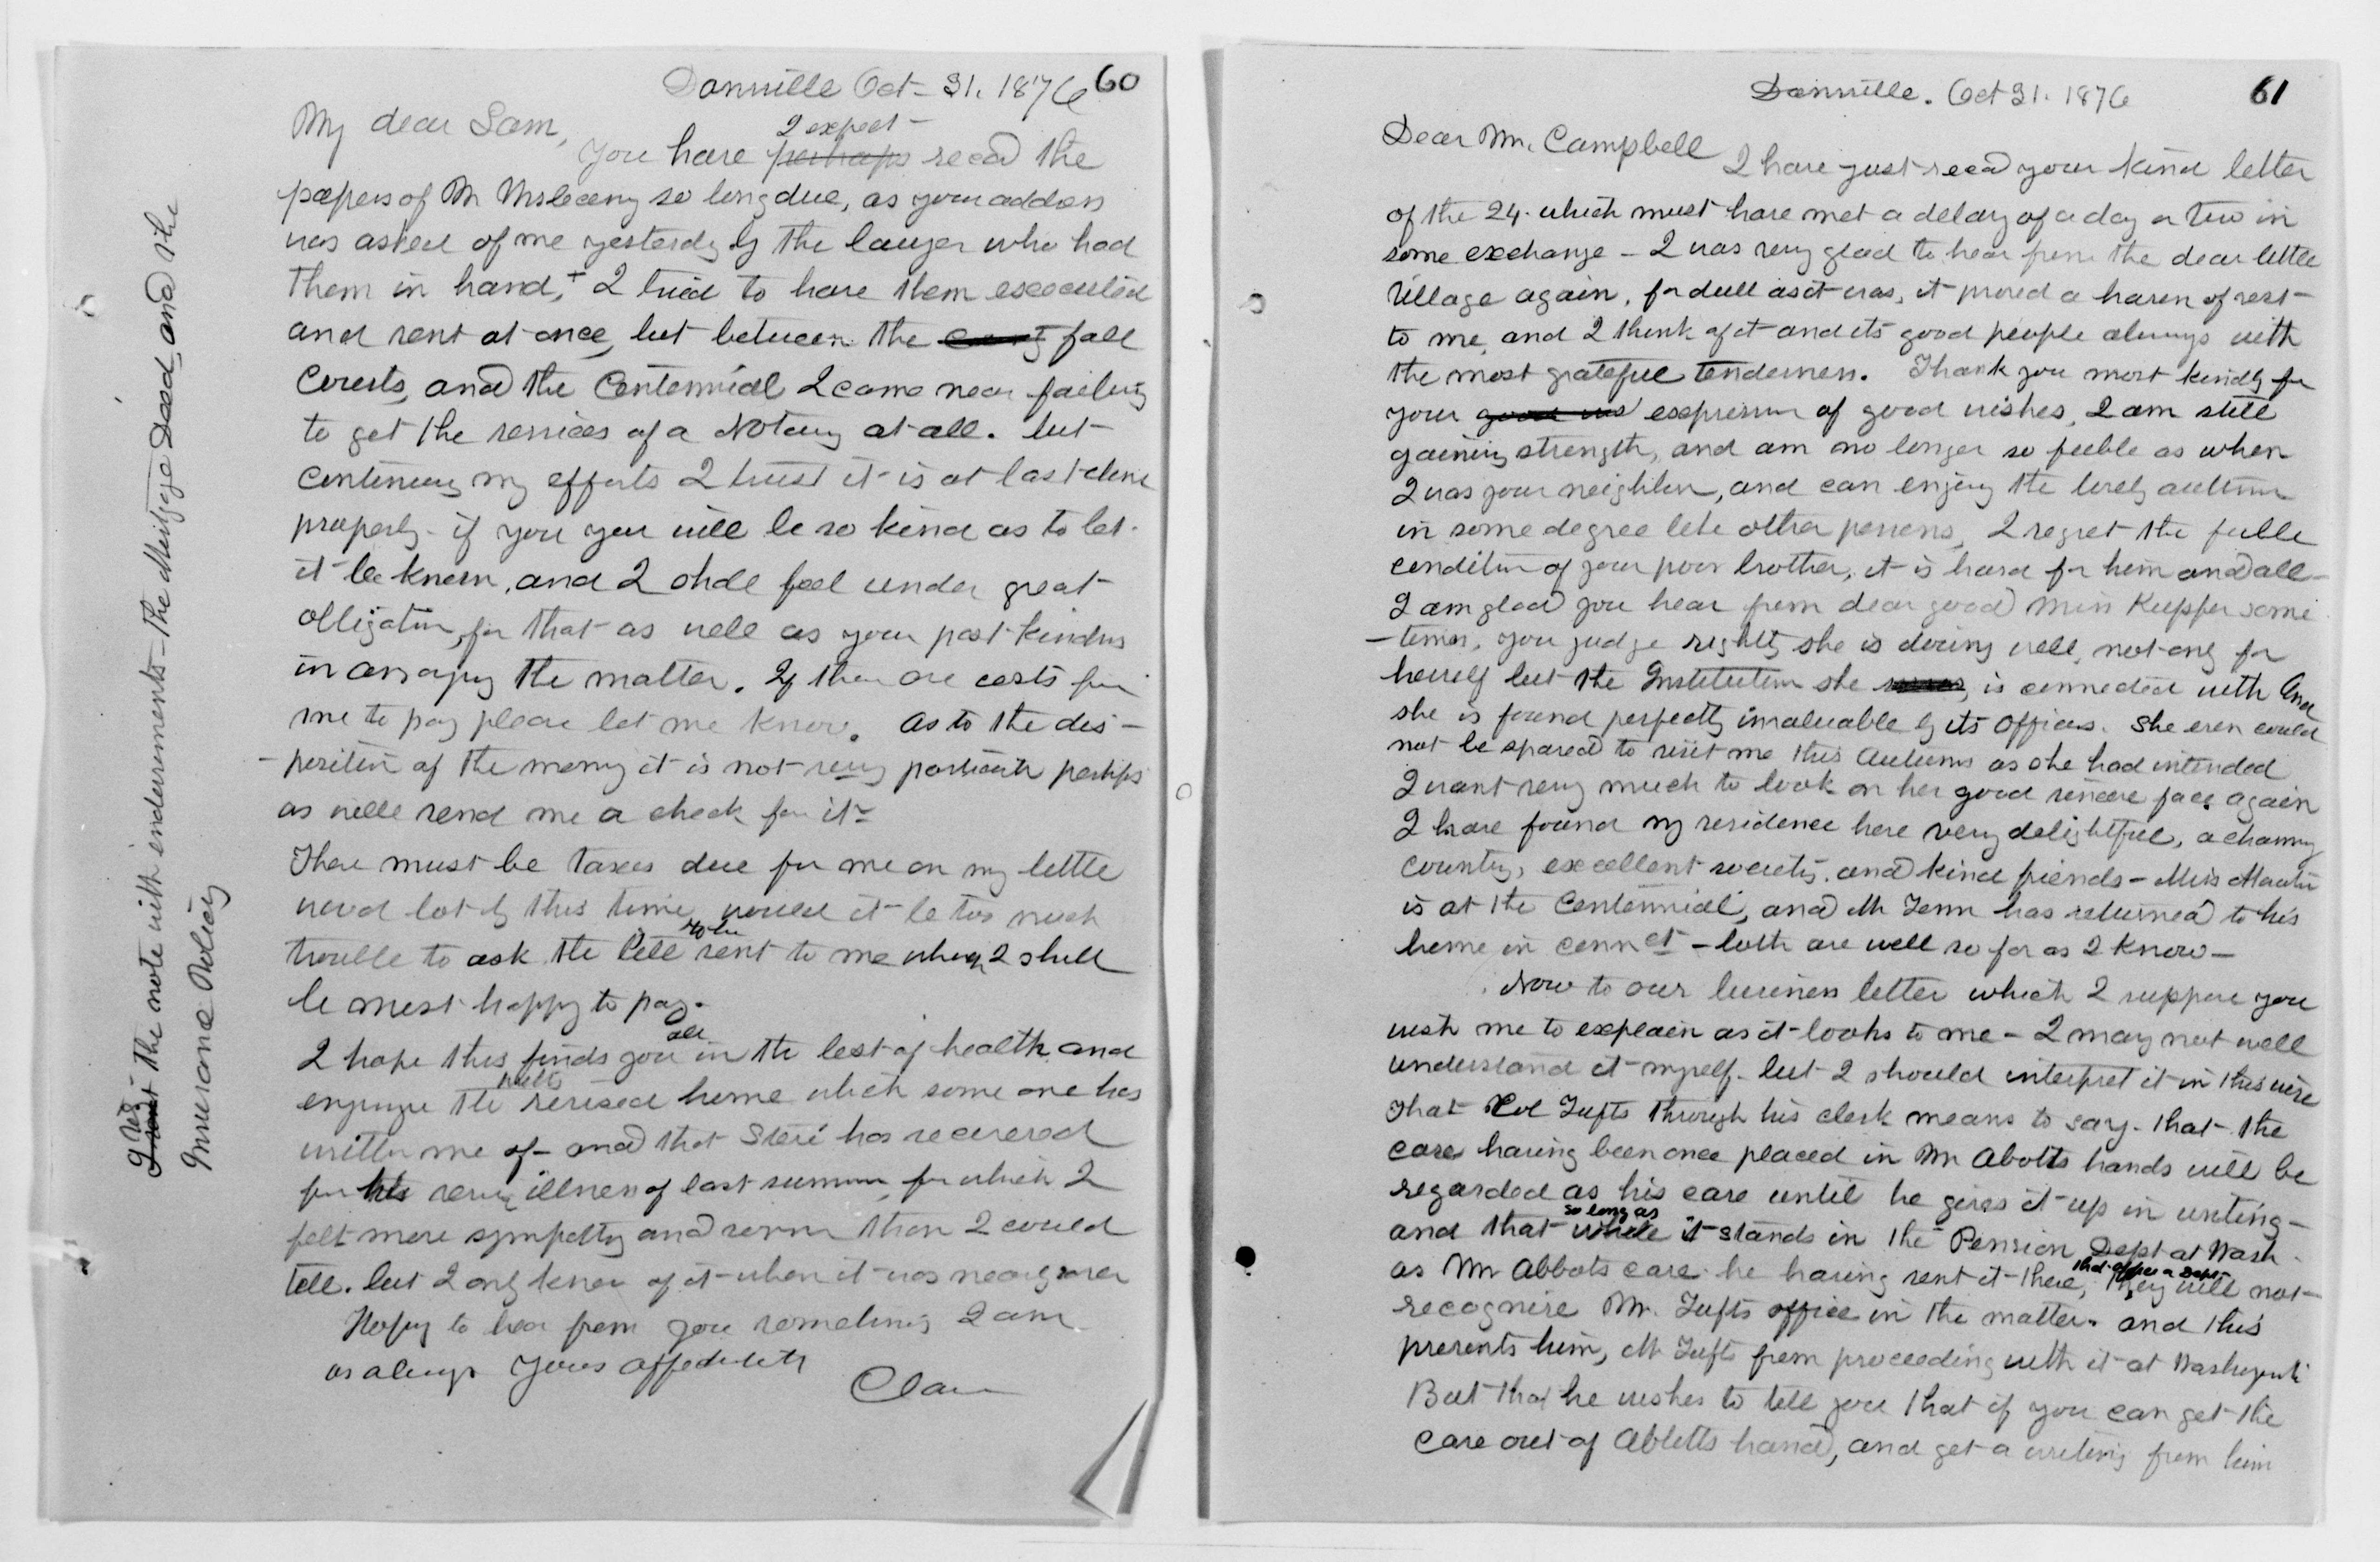 Danville Oct- 31. 1876 60
My dear Sam,
I expect-
You have perhaps recd the
papers of Mr so long due, as your address
was asked of me yesterday by the lawyer who had
them in hand, + I tried to have them executed
and sent at once, but between the fall
Courts, and the Centennial I came near failing
to get the services of a Notary at all. but-
continuing my efforts I trust it is at last done
properly- if you you will be so kind as to let-
it be known, and I shdl feel under great-
obligation, for that as well as your past kindness
in arranging the matter. If there are costs for
me to pay please let me know. As to the dis-
-position of the money it is not very particular perhaps
as well send me a check for it-
There must be taxes due for me on my little
wood lot by this time, would it be too much
to be
trouble to ask the bill sent to me when I shall
be most happy to pay.
all
I hope this finds you in the best of health, and
enjoying the revised home which some one has
written me of- and that Steve has recovered
from his very illness of last summer, for which I
felt more sympathy and sorrow than I could
tell. but I only knew of it when it was nearly over
Hoping to hear from you sometimes I am
as always Yours affectionately
Clara
I res
I want the note with endorsements- the Mortgage Deed and the
Insurance Policy
Danville. Oct 31. 1876 61
Dear Mr. Campbell
I have just recd your kind letter
of the 24. which must have met a delay of a day or two in
some exchange - I was very glad to hear from the dear little
Village again, for dull as it was, it proved a haven of rest-
to me, and I think of it and its good people always with
the most grateful tenderness. Thank you most kindly for
your good wis expression of good wishes, I am still
gaining strength, and am no longer so feeble as when
I was your neighbor, and can enjoy the lovely autumn
in some degree like other persons, I regret the feeble
condition of your poor brother, it is hard for him and all-
I am glad you hear from dear good Miss Kupfer some
-times, you judge rightly she is doing well, not only for
herself but the Institution she is connected with And
she is found perfectly invaluable by its Officers. She even could
not be spared to visit me this Autumn as she had intended
I want very much to look on her good sincere face again
I have found my residence here very delightful, a charming
country, excellent society, and kind friends - Miss
is at the Centennial, and Mr Fenn has returned to his
home in Connct - both are well so far as I know -
Now to our business letter which I suppose you
wish me to explain as it looks to me - I may not well
understand it myself- but I should interpret it in this wise
That Col Tufts through his clerk means to say- that- the
case having been once placed in Mr Abotts hands will be
regarded as his case until he gives it up in writing-
so long as
and that while it stands in the Pension Dept at Wash.
that office or Dept
as Mr Abbots case- he having sent it there, they will not-
recognise Mr. Tufts office in the matter. and this
prevents him, Mr Tufts from proceeding with it at Washington
But that he wishes to tell you that if you can get the
case out of Abbotts hand, and get a writing from him